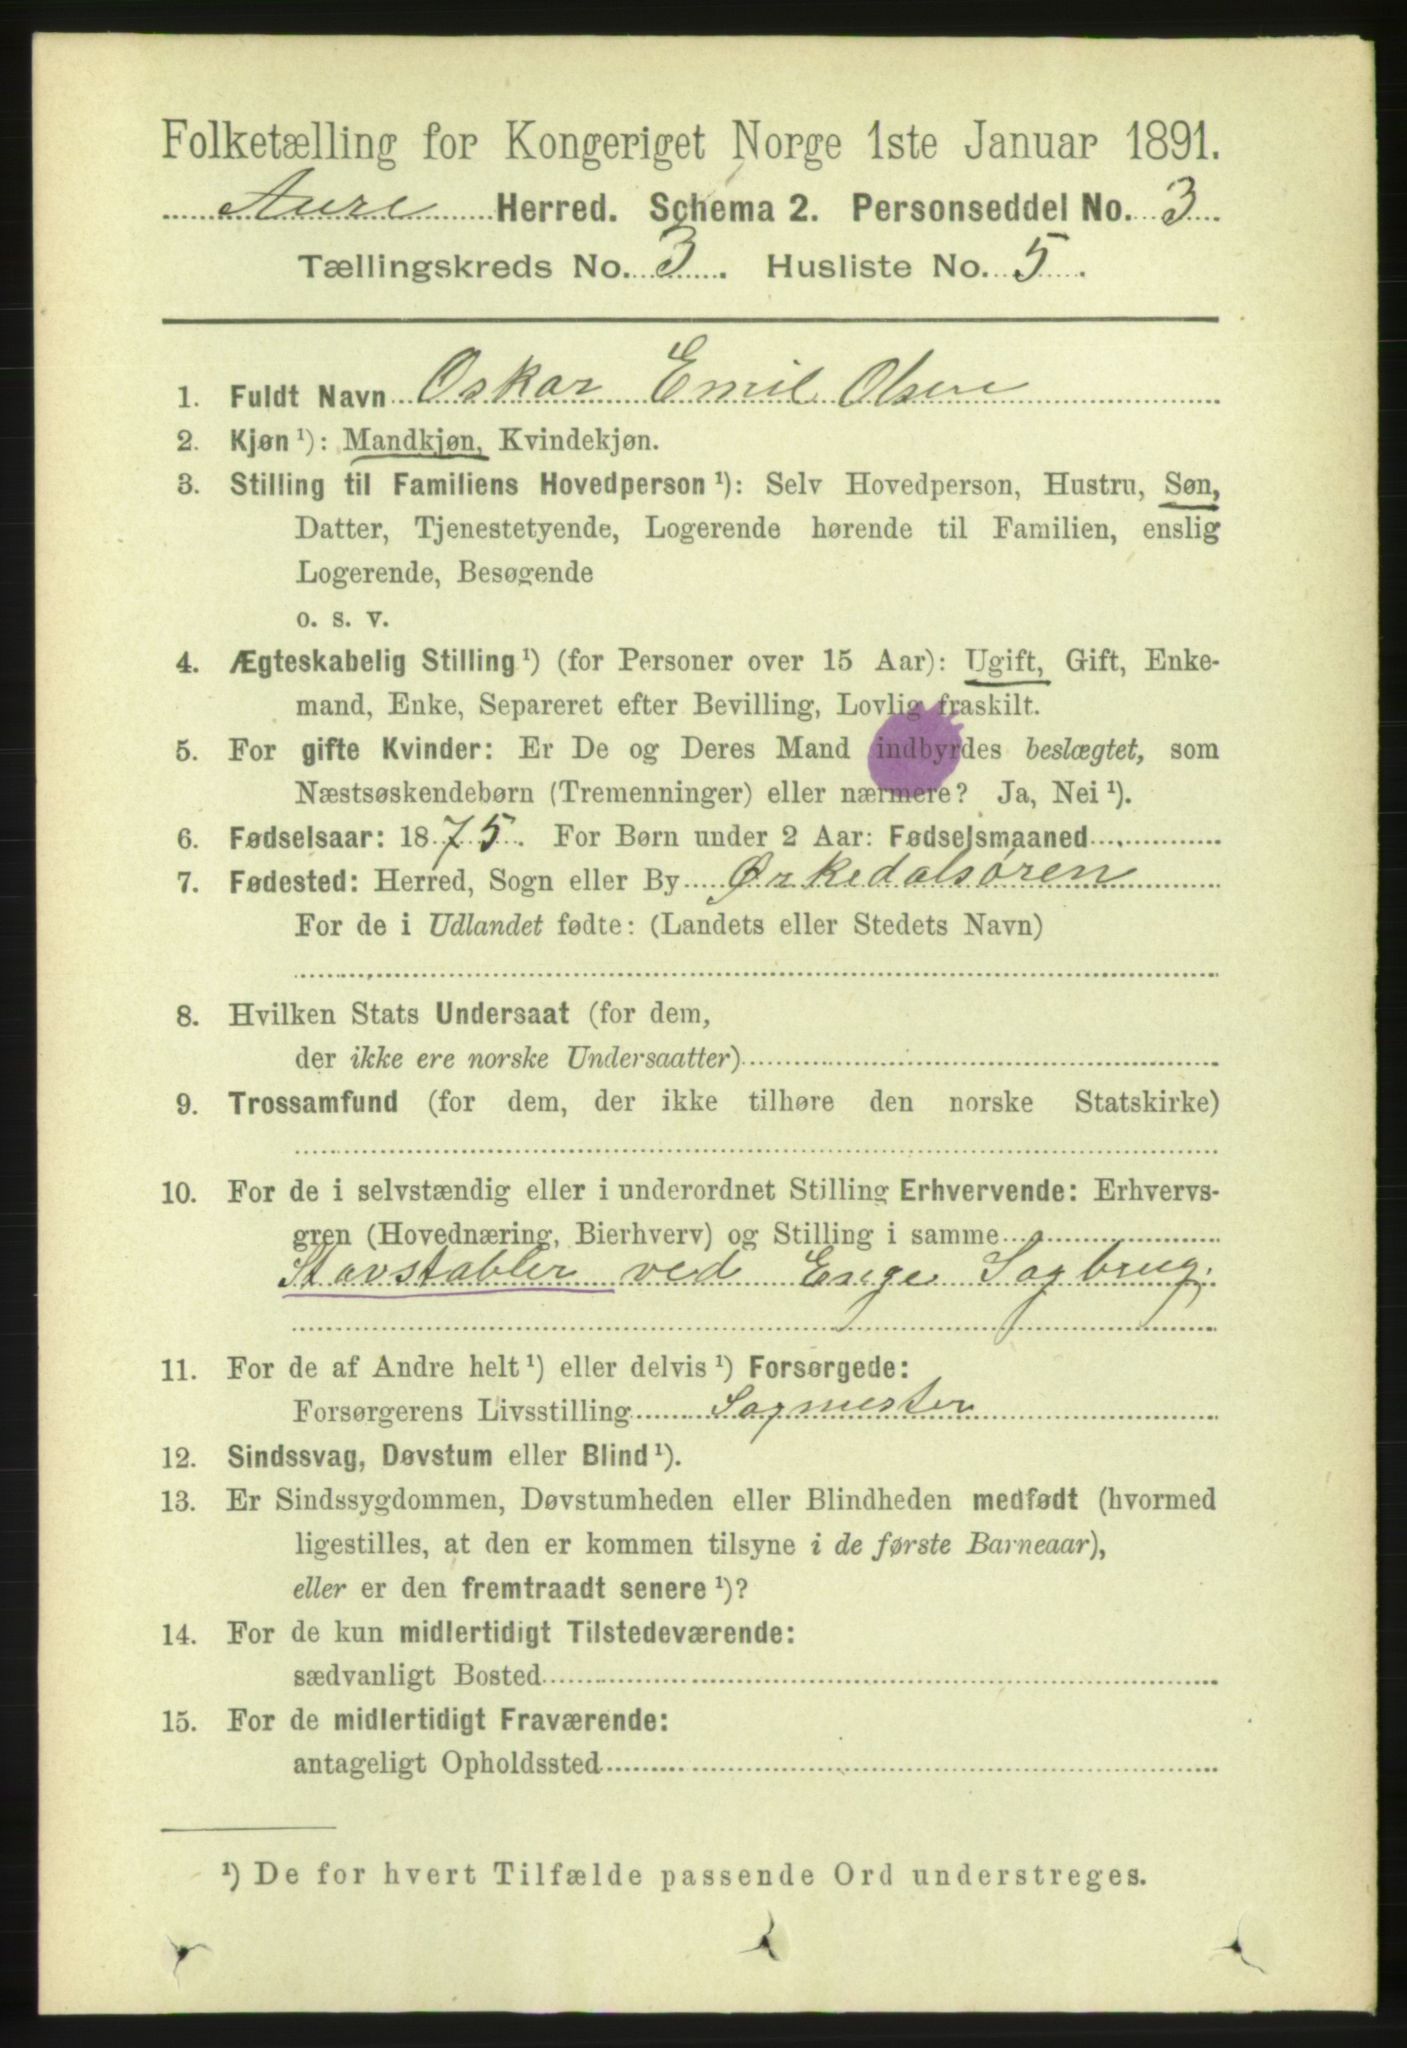 Folketælling for Kongeriget Norge 1ste Januar 1891.
Aure Herred. Schema 2. Personseddel No. 3
Tællingskreds No. 3. Husliste No. 5.
1. Fuldt Navn Oskar Emil Olsen
2. Kjøn ¹): Mandkjøn, Kvindekjøn.
3. Stilling til Familiens Hovedperson ¹): Selv Hovedperson, Hustru, Søn,
Datter, Tjenestetyende, Logerende hørende til Familien, enslig
Logerende, Besøgende
o. s. v.
4. Ægteskabelig Stilling ¹) (for Personer over 15 Aar): Ugift, Gift, Enke-
mand, Enke, Separeret efter Bevilling, Lovlig fraskilt.
5. For gifte Kvinder: Er De og Deres Mand indbyrdes beslægtet, som
Næstsøskendebørn (Tremenninger) eller nærmere? Ja, Nei ¹).
6. Fødselsaar: 1875. For Børn under 2 Aar: Fødselsmaaned
7. Fødested: Herred, Sogn eller By Ørkedalsøren
For de i Udlandet fødte: (Landets eller Stedets Navn)
8. Hvilken Stats Undersaat (for dem,
der ikke ere norske Undersaatter)
9. Trossamfund (for dem, der ikke tilhøre den norske Statskirke)
10. For de i selvstændig eller i underordnet Stilling Erhvervende: Erhvervs-
gren (Hovednæring, Bierhverv) og Stilling i samme
Stavstabler ved Enge Sagbrug.
11. For de af Andre helt ¹) eller delvis ¹) Forsørgede:
Forsørgerens Livsstilling Sagmester
12. Sindssvag, Døvstum eller Blind ¹).
13. Er Sindssygdommen, Døvstumheden eller Blindheden medfødt (hvormed
ligestilles, at den er kommen tilsyne i de første Barneaar),
eller er den fremtraadt senere ¹)?
14. For de kun midlertidigt Tilstedeværende:
sædvanligt Bosted
15. For de midlertidigt Fraværende:
antageligt Opholdssted
¹) De for hvert Tilfælde passende Ord understreges.